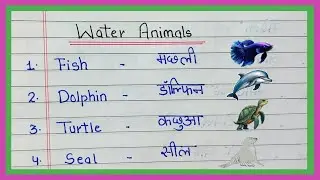 Water Animals
1. Fish - मछली
2. Dolphin - डॉल्फिन
3. Turtle - कछुआ
4. Seal - सील